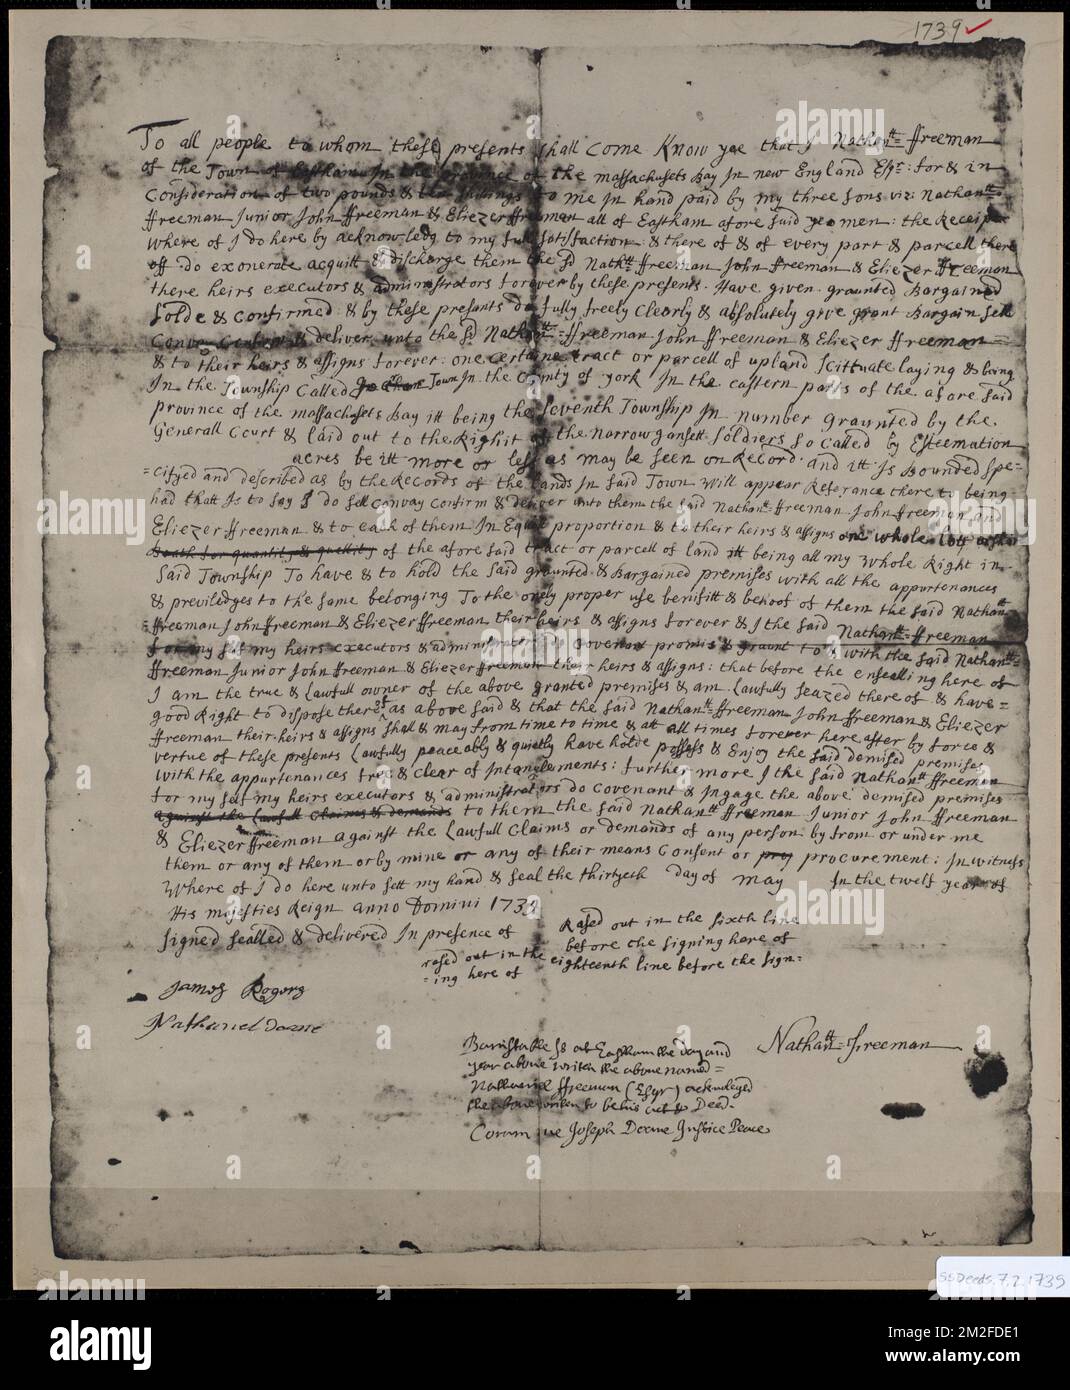 1739
To all people to whom these presents shall come Know yee that I Nathanll= ffreeman
of the Town of Eastham In the province of the massachusets Bay In new England Esqr: for & in
Consideration of two pounds & ten shillings to me In hand paid by my three sons viz: Nathanll=
ffreeman Junior John ffreeman & Eliezer ffreeman all of Eastham afore said yeomen: the Receipt
where of I do here by acknowledg to my full satisfaction: & there of & of every part & parcell there
off do exonerate acquitt & discharge them the sd Nathll= ffreeman John ffreeman & Eliezer ffreeman
there heirs executors & administrators forover by these presents. Have given graunted Bargained
solde & confirmed & by these presents do fully freely Clearly & absolutely give grant Bargain sell
Convay Confirm & deliver unto the sd Nathanll= ffreeman John ffreeman & Eliezer ffreeman=
& to their heirs & assigns forever: one certaine tract or parcell of upland scittuate laying & being
In the Township Called Town In the County of york In the eastern parts of the afore said
province of the massachusets Bay itt being the seventh Township In number graunted by the
Generall Court & laid out to the Righit of the narrowgansett soldiers so called by Esteemation
acres be itt more or less as may be seen on Record. and itt Is Bounded spe=
=cifyed and described as by the Records of the lands In said Town will appear Referance there to being
had thatt Is to say I do sell convay confirm & deliver unto them the said Nathanll= ffreeman John ffreeman and
Eliezer ffreeman & to each of them In Equal proportion & to their heirs & assigns one whole lott
both for quantity & quallity of the afore said tract or parcell of land itt being all my whole Right in
said Township To have & to hold the said graunted & Bargained premises with all the appurtenances
& previledges to the same belonging To the only proper use benifitt & behoof of them the said Nathanll=
ffreeman John ffreeman & Eliezer ffreeman their heirs & assigns forever & I the said Nathanll= ffreeman
for my self my heirs executors & administrators do Covenant promis & graunt to & with the said Nathanll=
ffreeman Junior John ffreeman & Eliezer ffreeman their heirs & assigns: that before the ensealling here of
I am the true & Lawfull owner of the above granted premises & am Lawfully seazed there of & have=
good Right to dispose there of as above said & that the said Nathanll= ffreeman John ffreeman & Eliezer
ffreeman their heirs & assigns shall & may from time to time & att all times forever here after by force &
vertue of these presents Lawfully peaceably & quietly have holde possess & Enjoy the said demised premises
with the appurtenances free & clear of Intanglements: further more I the said Nathanll ffreeman
for my self my heirs executors & administrators do Covenant & Ingage the above demised premises
against the Lawfull Claims & demands to them the said Nathanll ffreeman Junior John ffreeman
& Eliezer ffreeman against the Lawfull Claims or demands of any person by from or under me
them or any of them or by mine or any of their means Consent or procurement: In witness
where of I do here unto sett my hand & seal the thirtyeth day of may In the twelf year of
His majesties Reign anno Domini 1739
signed sealled & delivered In presence of
Rased out in the sixth line
before the signing here of
rased out in the eighteenth line before the sign=
=ing here of
James Rogers
Nathaniel doane
Nathanll= ffreeman
Barnstable ss att Eastham the day and
year above writen the above named=
Nathaniel ffreeman (Esqr) acknowledged
the above writen to be his act & Deed.
Coram me Joseph Doane Justice Peace
SSDeeds.7.2.1739
alamy
Image ID: 2M2FDE1
www.alamy.com